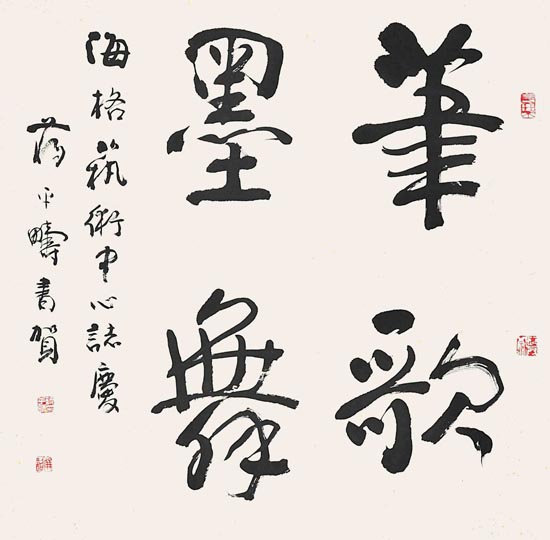 筆歌
墨舞
海格藝術中心誌慶
蔣平疇書賀